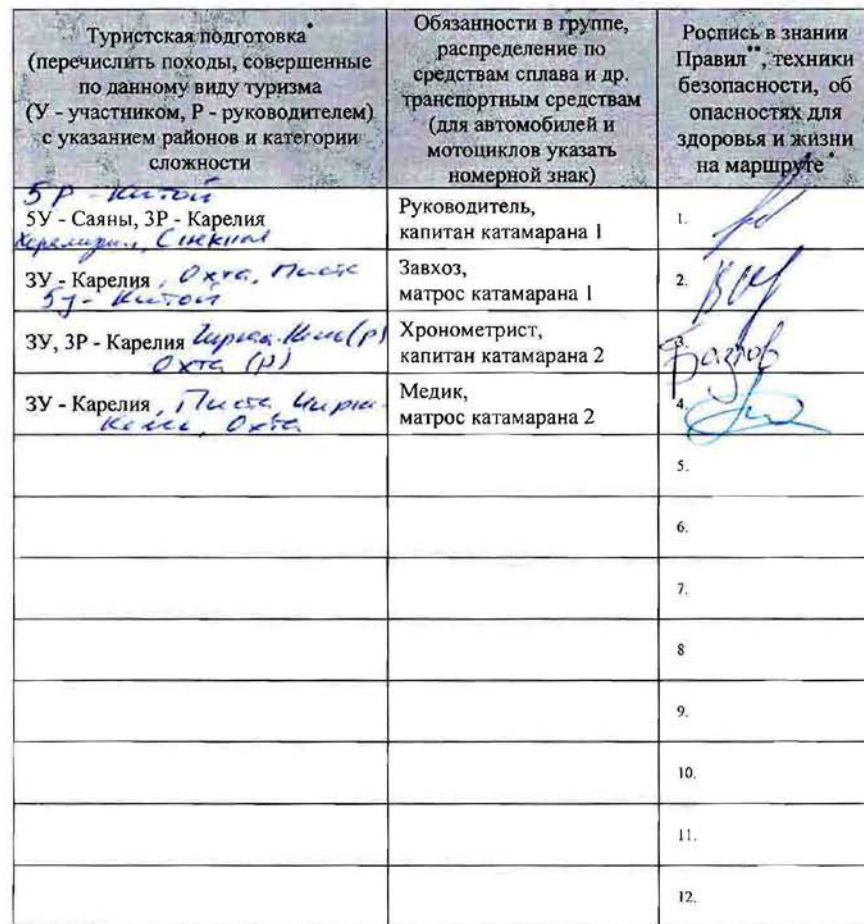 Туристская подготовка*
(перечислить походы, совершенные
по данному виду туризма
(У - участником, Р - руководителем)
с указанием районов и категории
сложности
Обязанности в группе,
распределение по
средствам сплава и др.
транспортным средствам
(для автомобилей и
мотоциклов указать
номерной знак)
Роспись в знании
Правил**, техники
безопасности, об
опасностях для
здоровья и жизни
на маршруте*
5Р - Китой
5У - Саяны, 3Р - Карелия
Снежная
Руководитель,
капитан катамарана 1
1.
3У - Карелия, Охта, Писта
5У - Китой
Завхоз,
матрос катамарана 1
2.
3У, 3Р - Карелия Чирка-Кемь (Р)
Охта (Р)
Хронометрист,
капитан катамарана 2
3.
Базлов
3У - Карелия, Писта Чирка-
Кемь, Охта
Медик,
матрос катамарана 2
4.
5.
6.
7.
8
9.
10.
11.
12.